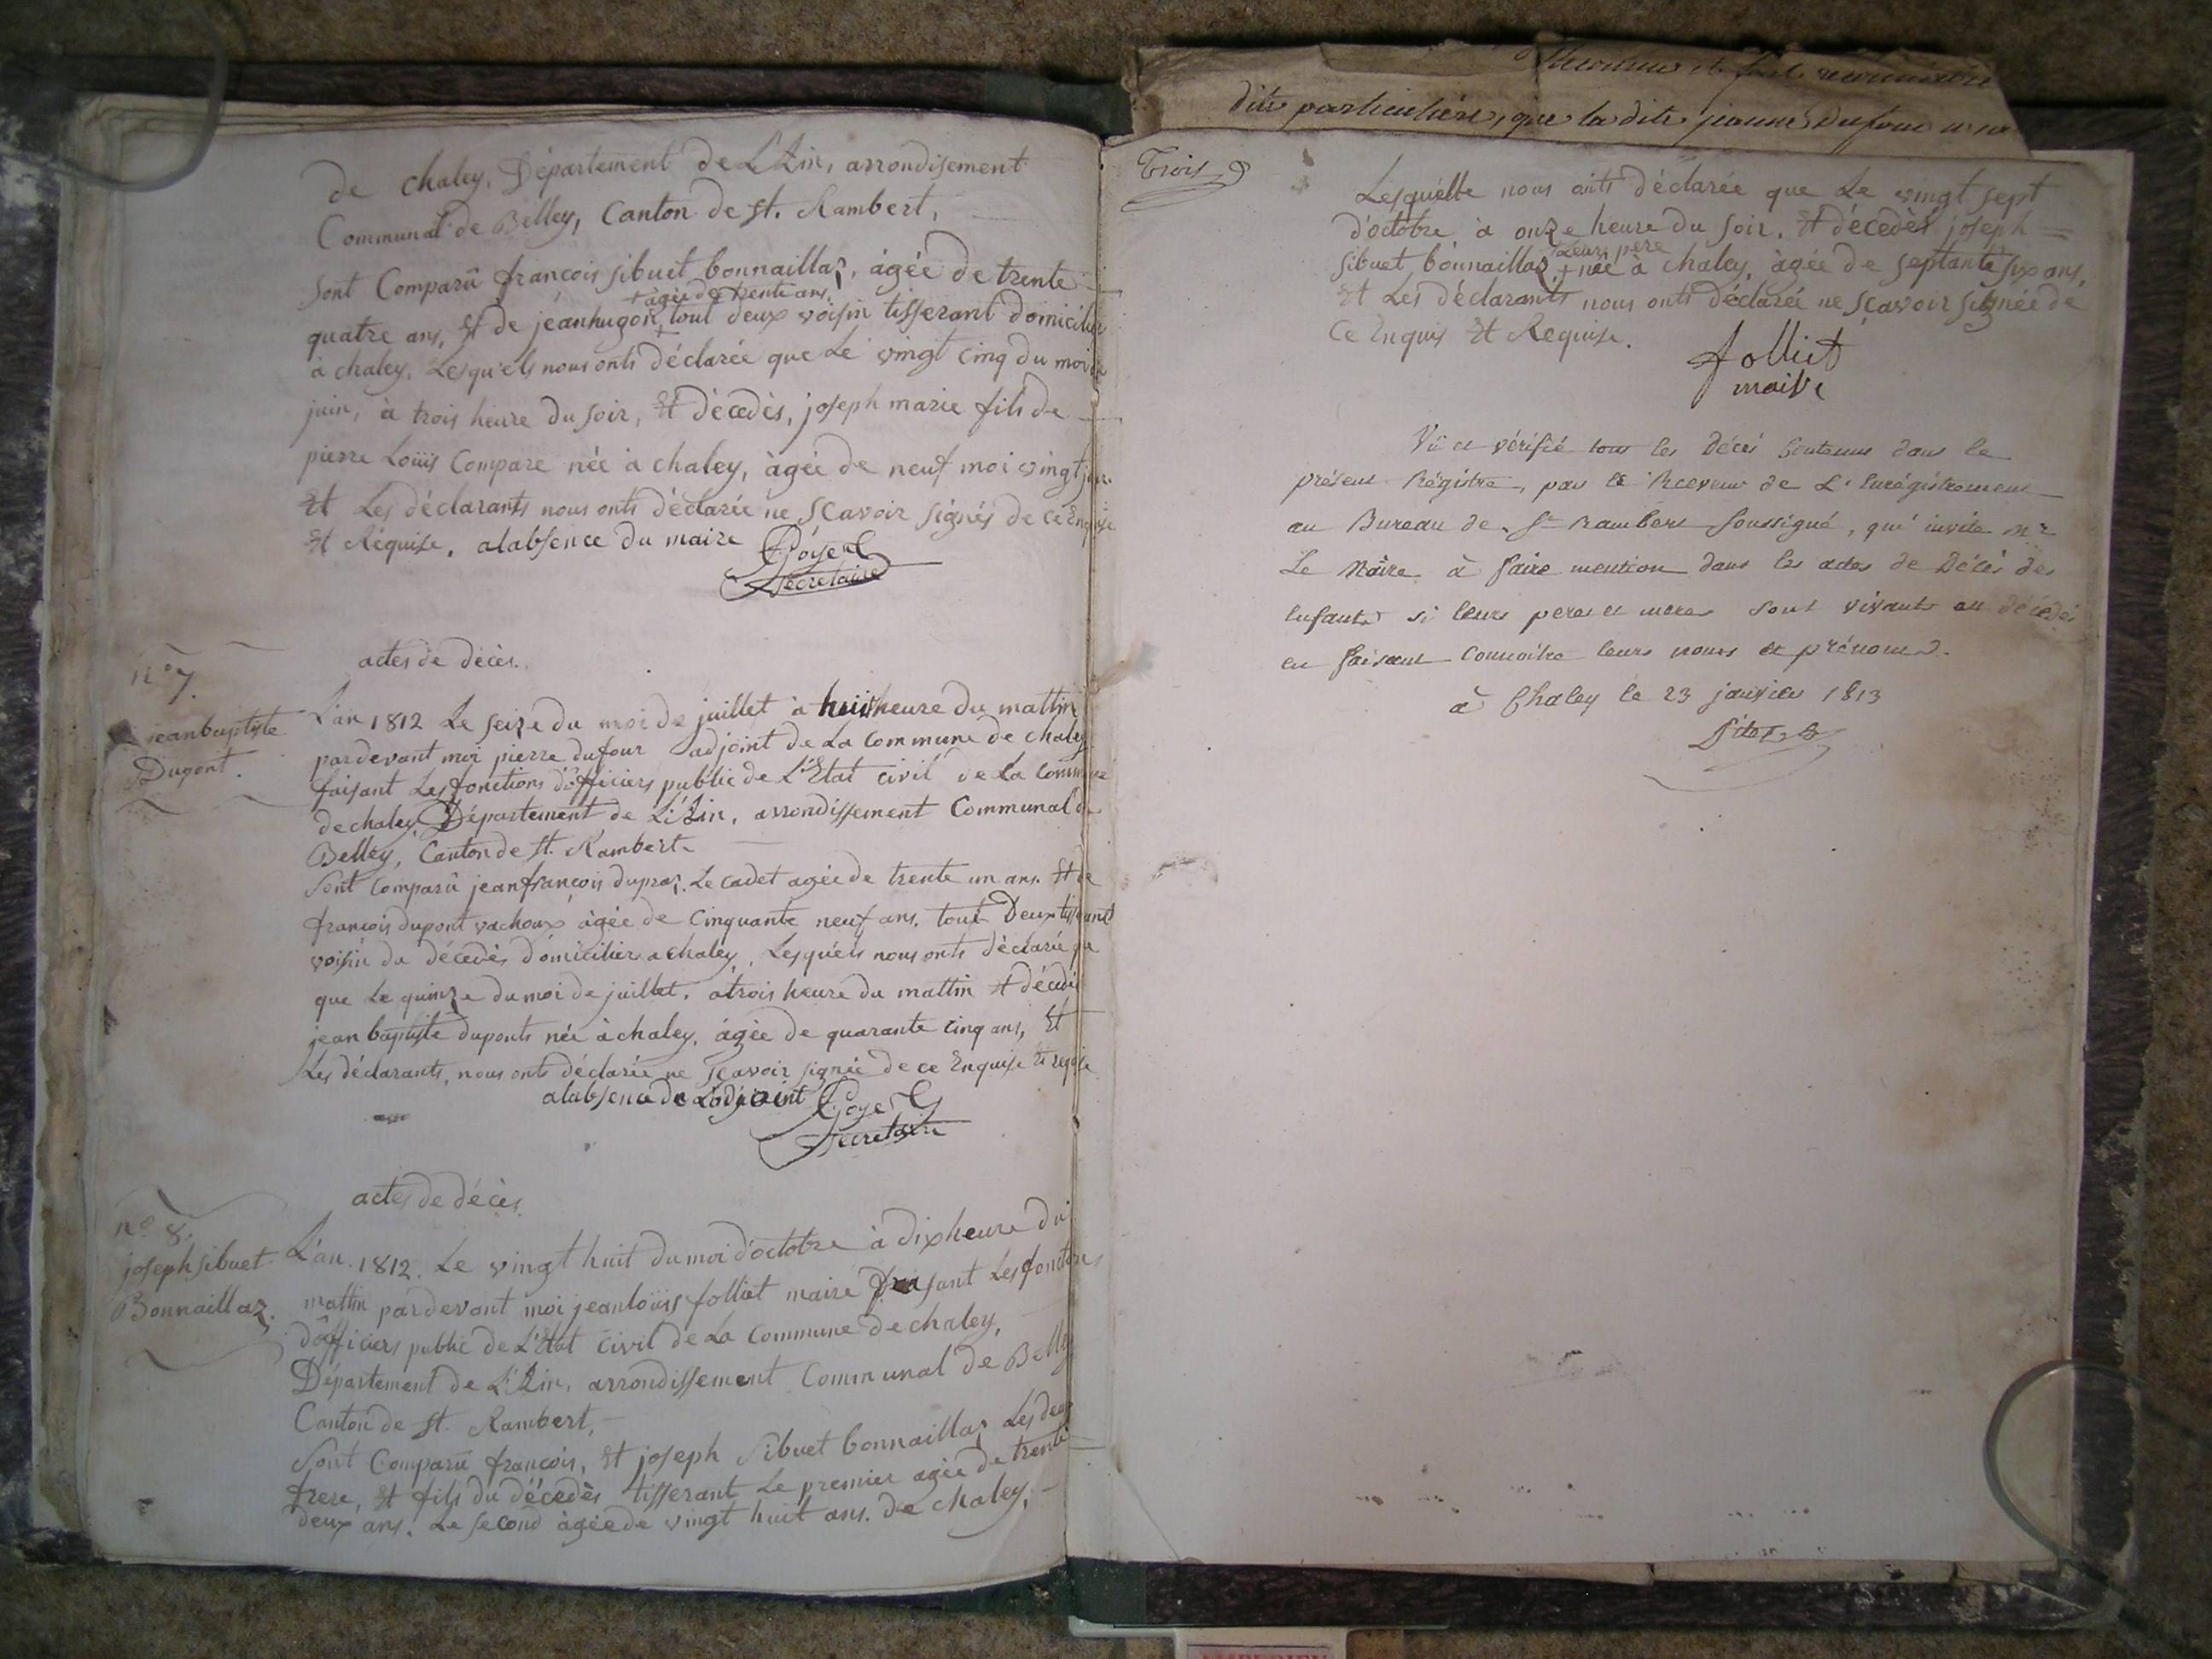 de chaley, Département de L'Ain, arrondisement
Communal de Belley, Canton de st. Rambert,
sont Comparû françois sibuet bonnaillaz, àgée de trente
+ àgée de trente ans.
quatre ans, Et de jeanhugon, + tout deux voisin tisserant domicilier
à chaley, Lesquels nous onts déclarée que Le vingt cinq du moi de
juin, à trois heure du soir, Et décedès, joseph marie fils de
pierre Loüis Compare née à chaley, àgée de neuf moi vingt jour.
Et Les déclarants nous onts déclarée ne sCavoir signés de ce Enquise
Et Réquise. alabsence du maire
Goyet
Secretaire
actes de décès.
n° 7.
jeanbaptiste
Dupont.
L'an 1812 Le seize du moi de juillet à huit heure du mattin
pardevant moi pierre dufour adjoint de La Commune de chaley
faisant Les fonctions d'officiers public de L'Etat civil de La Commune
de chaley, Département de L'Ain, arrondissement Communal de
Belley, Canton de st. Rambert.
sont Comparû jeanfrançois dupraz. Le cadet agée de trente un ans. Et de
françois dupont vachoux àgée de Cinquante neuf ans. tout Deux tisserant
voisin du décedès domicilier a chaley, Lesquels nous onts déclarée que
que Le quinze du moi de juillet. a trois heure du mattin Et décedé
jean baptiste duponts née à chaley, àgée de quarante Cinq ans, Et
Les déclarants, nous onts déclarée ne sçavoir signée de ce Enquise Et requise
alabsence de Ladjoint
Goyet
Secretaire
actes de décès.
n° 8.
joseph sibuet
Bonnaillaz.
L'an 1812. Le vingt huit du moi d'octobre à dix heure du
mattin pardevant moi jeanloüis folliet maire faisant Les fonctions
d'officiers public de L'Etat Civil de La Commune de chaley,
Département de L'Ain, arrondissement Communal de Belley
Canton de st. Rambert,
sont Comparû françois, Et joseph sibuet bonnaillaz Les deux
frere, Et fils du décedès tisserant Le premier agée de trente
deux ans. Le second àgée de vingt huit ans. de chaley,
dite particulière, que la dite jeanne Dufour
Trois
Lesquelle nous onts déclarée que Le vingt sept
d'octobre à onze heure du soir. Et décedès joseph
Leurs père
sibuet bonnaillaz + née à chaley, àgée de septante six ans,
Et Les déclarants nous onts déclarée ne sçavoir signée de
Ce Enquis Et Requise.
folliet
maire
Vû et vérifié tous les Décès Contenus dans le
présent Régistre, par le Receveur de L'Enrégistrement
au Bureau de St Rambert Soussigné, qui invite Mr
Le Maire à faire mention dans les actes de Décès des
Enfants si leurs peres et meres sont vivants ou décedés
en faisant Connoitre leurs noms et prénoms.
à Chaley le 23 janvier 1813